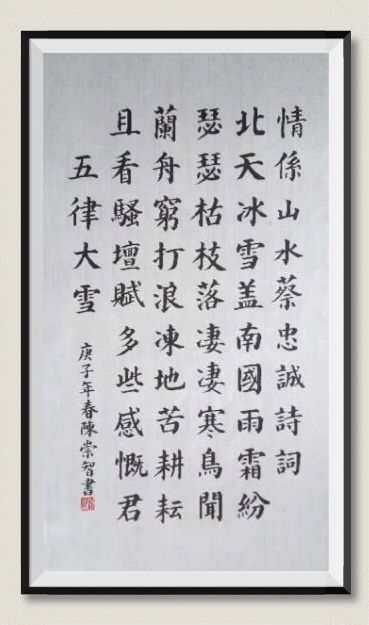 情係山水蔡忠誠詩詞
北天冰雪盖南國雨霜紛
瑟瑟枯枝落凄凄寒鳥聞
蘭舟窮打浪凍地苦耕耘
且看騷壇賦多些感慨君
五律大雪
庚子年春陳崇智書